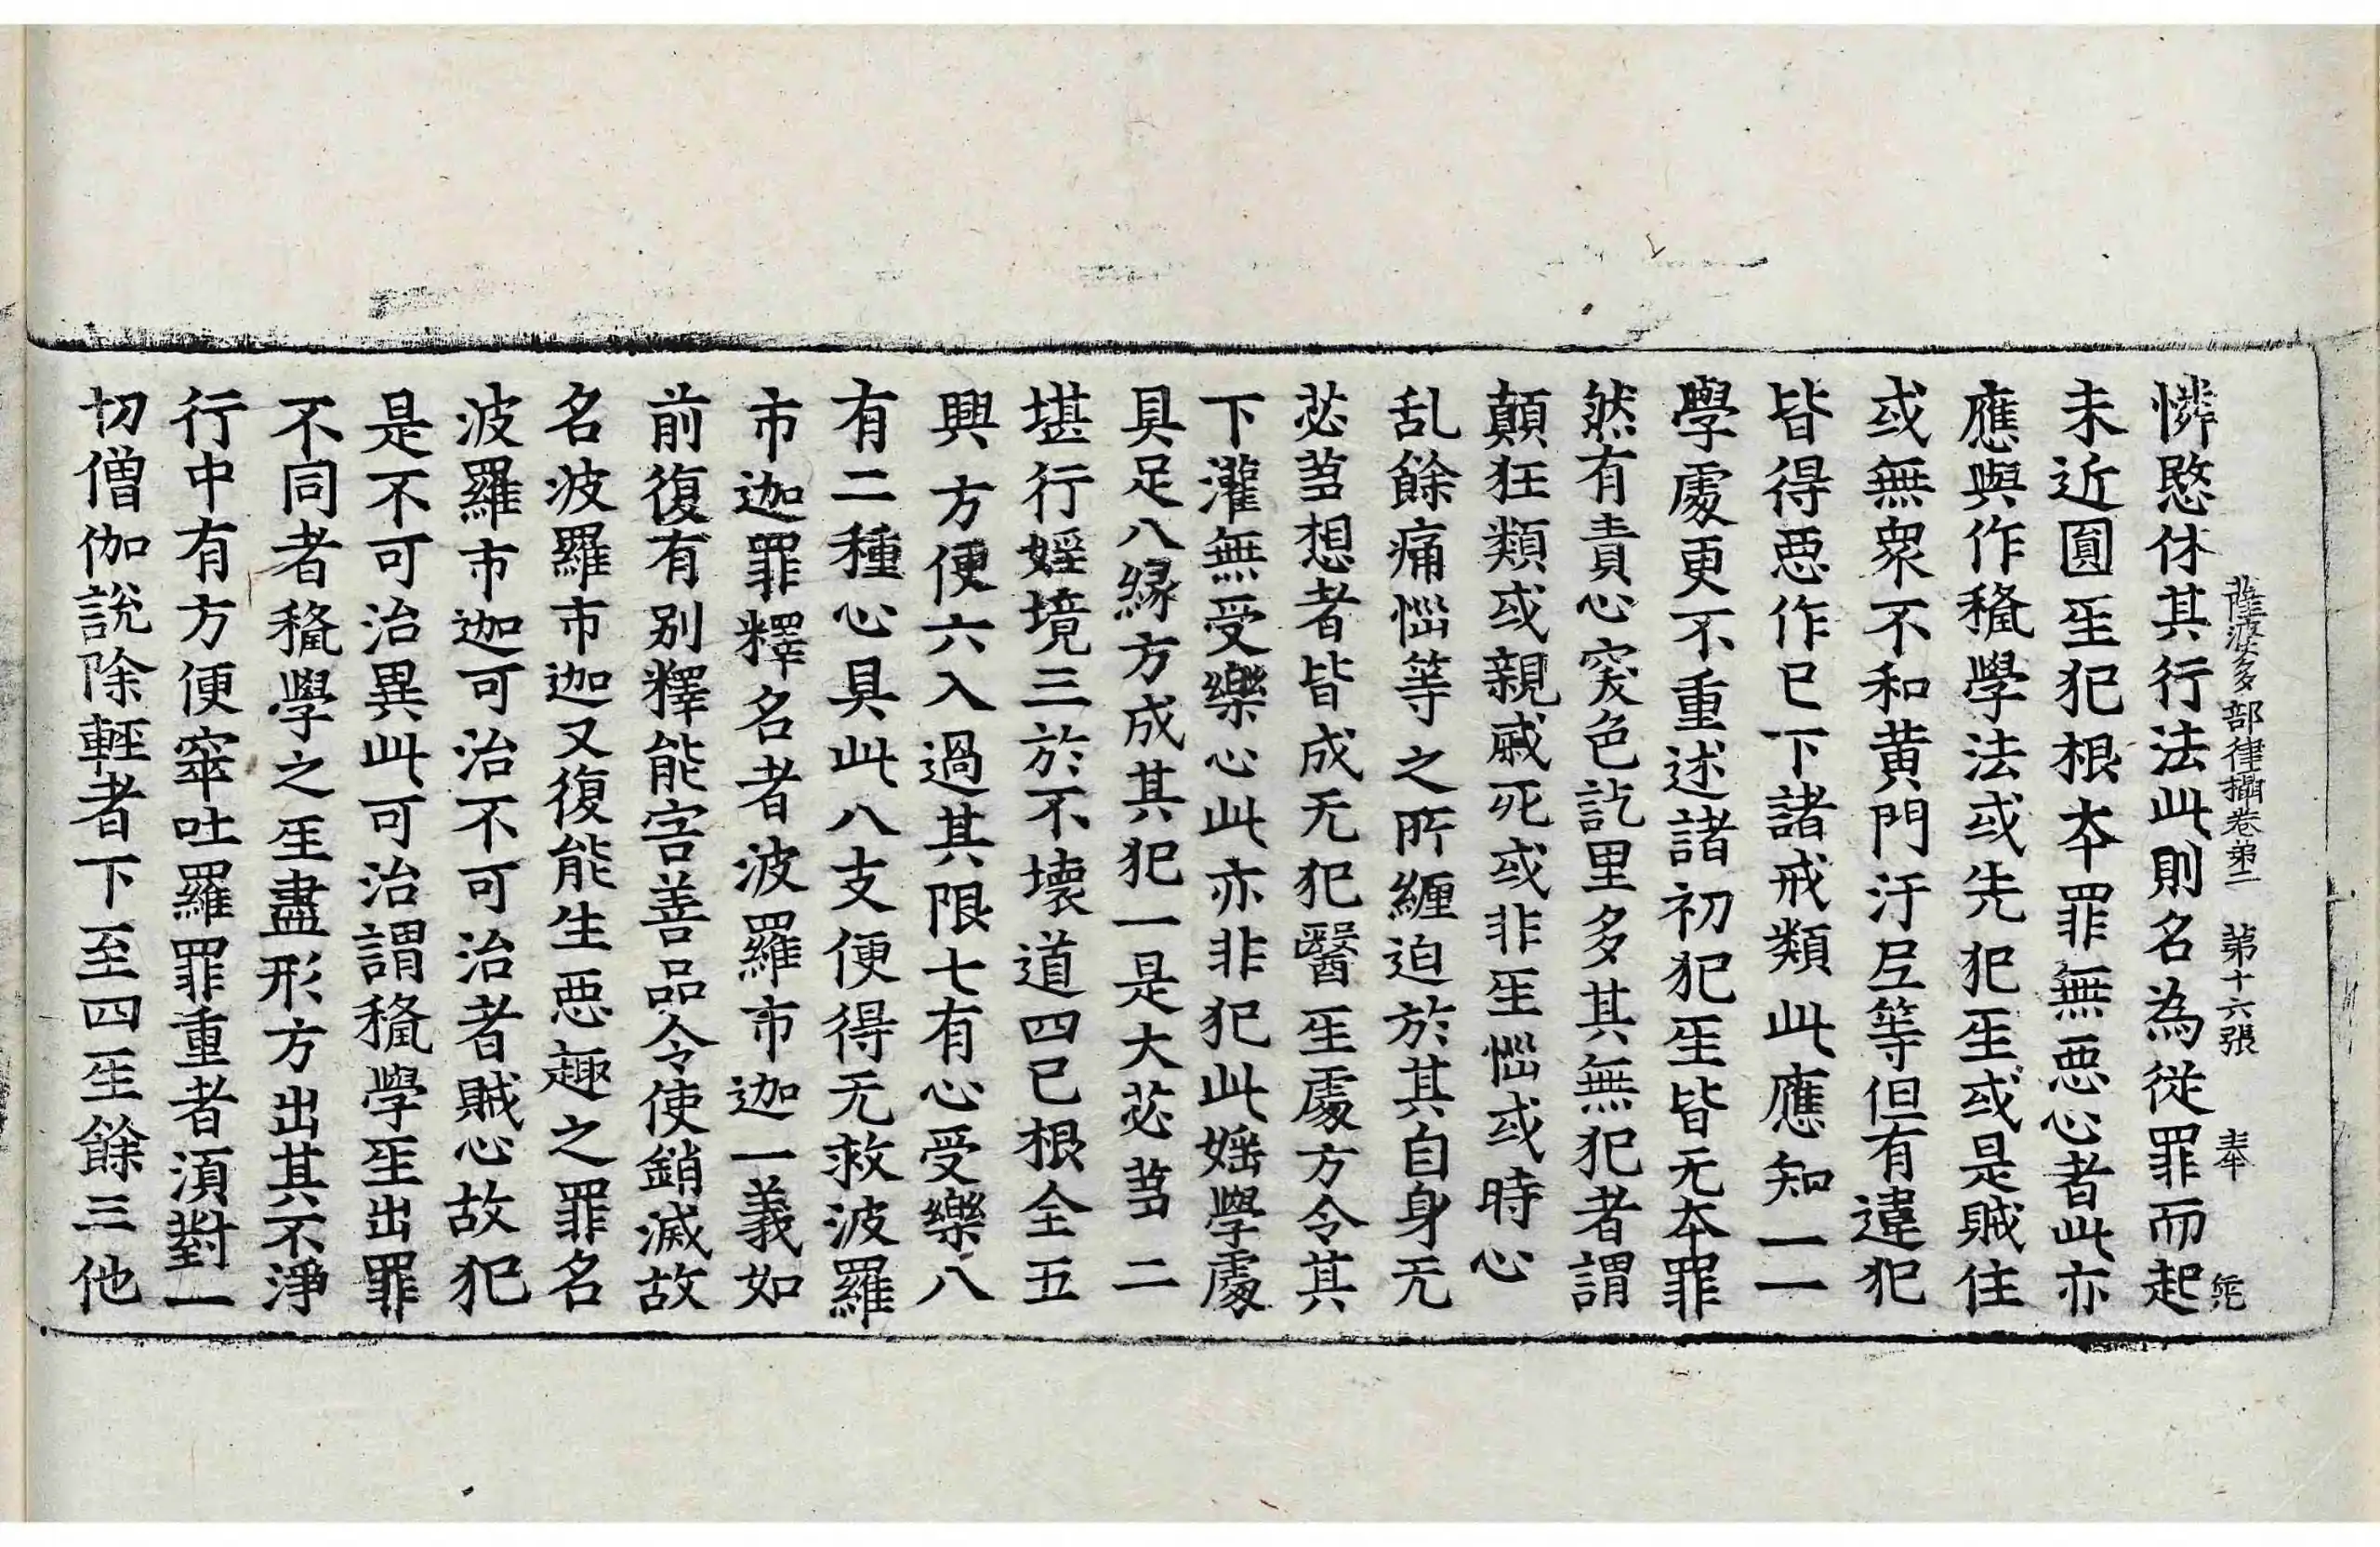 薩波多部律攝卷第二　第十六張　奉　㲋
憐愍休其行法此則名為從罪而起
未近圓𤯔犯根本罪無惡心者此亦
應與作𥠖學法或先犯𤯔或是賊住
或無衆不和黄門汙尼等但有違犯
皆得惡作已下諸戒類此應知一一
學處更不重述諸初犯𤯔皆无本罪
然有責心窣色訖里多其無犯者謂
顛狂類或親戚死或非𤯔惱或時心
乱餘痛惱等之所纏迫於其自身无
苾芻想者皆成无犯醫𤯔處方令其
下灌無受樂心此亦非犯此婬學處
具足八縁方成其犯一是大苾芻二
堪行婬境三於不壞道四已根全五
興方便六入過其限七有心受樂八
有二種心具此八支便得无救波羅
市迦罪釋名者波羅市迦一義如
前復有别釋能害善品令使銷滅故
名波羅市迦又復能生惡趣之罪名
波羅市迦可治不可治者賊心故犯
是不可治異此可治謂𥠖學𤯔出罪
不同者𥠖學之𤯔盡形方出其不淨
行中有方便窣吐羅罪重者須對一
切僧伽說除輕者下至四𤯔餘三他